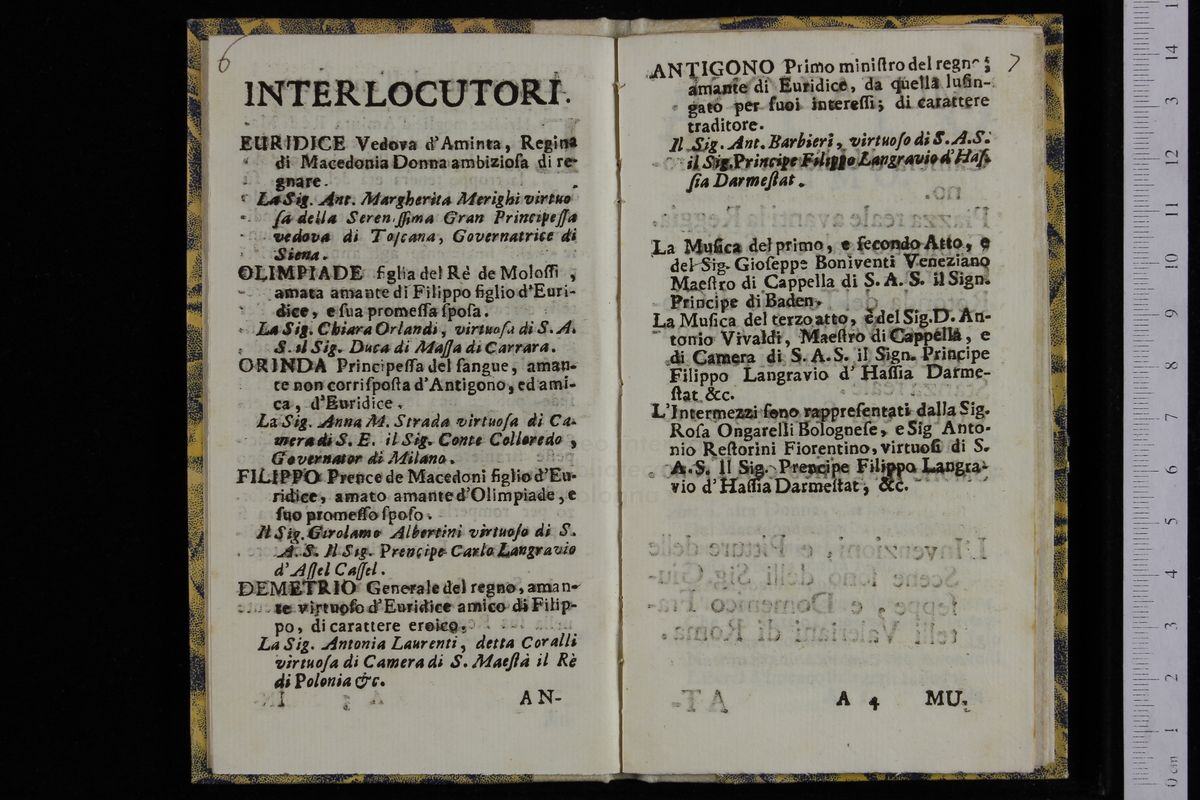 6
INTERLOCUTORI.
EURIDICE Vedova d'Aminta, Regina
di Macedonia Donna ambiziosa di re-
gnare.
La Sig. Ant. Margherita Merighi virtuo
sa della Sereniſſima Gran Principeſſa
vedova di Toſcana, Governatrice di
Siena.
OLIMPIADE figlia del Rè de Moloſſi,
amata amante di Filippo figlio d'Euri-
dice, e ſua promeſſa ſpoſa.
La Sig. Chiara Orlandi, virtuoſa di S. A.
S. il Sig. Duca di Maſſa di Carrara.
ORINDA Principeſſa del ſangue, aman-
te non corriſpoſta d'Antigono, ed ami-
ca, d'Euridice.
La Sig. Anna M. Strada virtuoſa di Ca-
mera di S. E. il Sig. Conte Colloredo,
Governator di Milano.
FILIPPO Prence de Macedoni figlio d'Eu-
ridice, amato amante d'Olimpiade, e
ſuo promeſſo ſpoſo.
Il Sig. Girolamo Albertini virtuoſo di S.
A. S. Il Sig. Prencipe Carlo Langravio
d'Aſſel Caſſel.
DEMETRIO Generale del regno, aman-
te virtuoſo d'Euridice amico di Filip-
po, di carattere eroico.
La Sig. Antonia Laurenti, detta Coralli
virtuoſa di Camera di S. Maeſtà il Rè
di Polonia &c.
AN-
7
ANTIGONO Primo miniſtro del regno;
amante di Euridice, da quella luſin-
gato per ſuoi intereſſi; di carattere
traditore.
Il Sig. Ant. Barbieri, virtuoſo di S.A.S.
il Sig. Principe Filippo Langravio d'Haſ-
ſia Darmeſtat.
La Muſica del primo, e ſecondo Atto, e
del Sig. Gioſeppe Boniventi Veneziano
Maeſtro di Cappella di S. A. S. il Sign.
Principe di Baden.
La Muſica del terzo atto, è del Sig. D. An-
tonio Vivaldi, Maeſtro di Cappella, e
di Camera di S. A. S. il Sign. Principe
Filippo Langravio d' Haſſia Darme-
ſtat &c.
L'Intermezzi ſono rappreſentati dalla Sig.
Roſa Ongarelli Bologneſe, e Sig Anto-
nio Reſtorini Fiorentino, virtuoſi di S.
A. S. Il Sig. Prencipe Filippo Langra-
vio d'Haſſia Darmeſtat, &c.
A 4 MU.